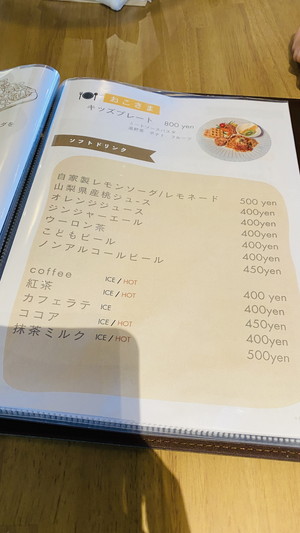 おこさま
キッズプレート 800 yen
ソフトドリンク
自家製レモンソーダ/レモネード 500 yen
山梨県産桃ジュース 400yen
オレンジジュース 400yen
ジンジャーエール 400yen
ウーロン茶 400yen
こどもビール 400yen
ノンアルコールビール 450yen
coffee ICE / HOT 400 yen
紅茶 ICE / HOT 400yen
カフェラテ ICE 450yen
ココア ICE / HOT 400yen
抹茶ミルク ICE / HOT 500yen